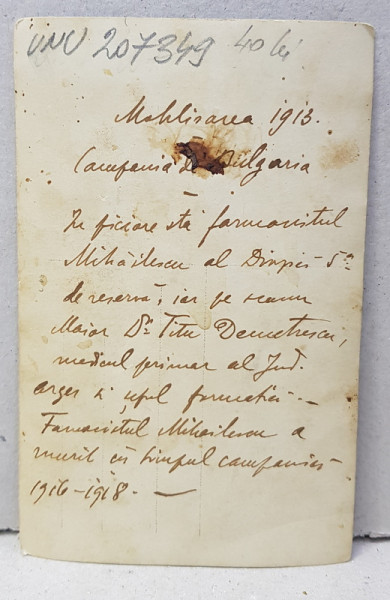 VNV 207349 40 lei
Moblisarea 1913.
Campania din Bulgaria
In picioare stă farmacistul
Mihăilescu al Diviziei 5ª
de reservă, iar pe scaun
Maior Dr. Titu Demetrescu,
medicul primar al Jud.
Argeș și șeful formatiei. -
Farmacistul Mihailescu a
murit cu timpul campaniei
1916-1918. -